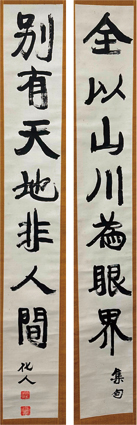 全以山川為眼界
集句
別有天地非人間
化人